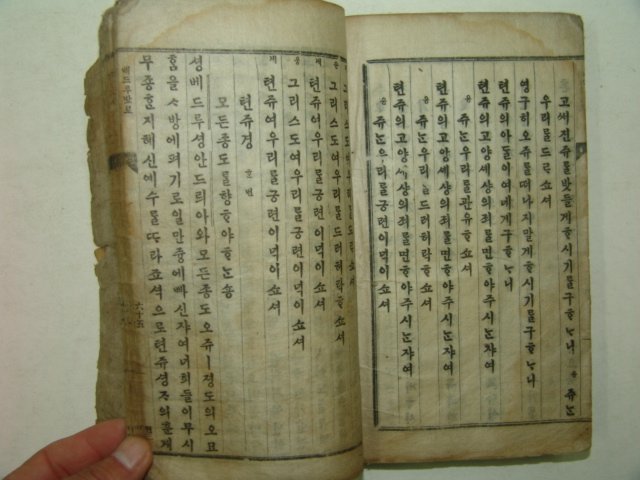 고셰진쥬를밧들게ᄒᆞ시기를구ᄒᆞᄂᆞ니 쥬ᄂᆞᆫ
우리를드르쇼셔
영구히오쥬를ᄯᅥ나지말게ᄒᆞ시기를구ᄒᆞᄂᆞ니
텬쥬의아들이여네게구ᄒᆞᄂᆞ니
텬쥬의고양셰샹의죄를면ᄒᆞ야주시ᄂᆞᆫ쟈여
응 쥬ᄂᆞᆫ우리를관유ᄒᆞ쇼셔
텬쥬의고양셰샹의죄를면ᄒᆞ야주시ᄂᆞᆫ쟈여
응 쥬ᄂᆞᆫ우리를드러허락ᄒᆞ쇼셔
텬쥬의고양셰샹의죄를면ᄒᆞ야주시ᄂᆞᆫ쟈여
응 쥬ᄂᆞᆫ우리를긍련이녁이쇼셔
그리스도여우리를드르쇼셔
응 그리스도여우리를드러허락ᄒᆞ쇼셔
계 텬쥬여우리를긍련이녁이쇼셔
응 그리스도여우리를긍련이녁이쇼셔
계 텬쥬여우리를긍련이녁이쇼셔
텬쥬경 ᄒᆞᆫ번
모든종도를향ᄒᆞ야ᄒᆞᄂᆞᆫ숑
셩베드루셩안드릐아와모든종도오쥬ㅣ졍도의오묘
힘을ᄉᆞ방에펴기로일만즁에ᄲᅢ신쟈여너희들이무시
무죵ᄒᆞᆫ지혜신예수를ᄯᆞ라쇼셔으로텬쥬셩ᄌᆞ의